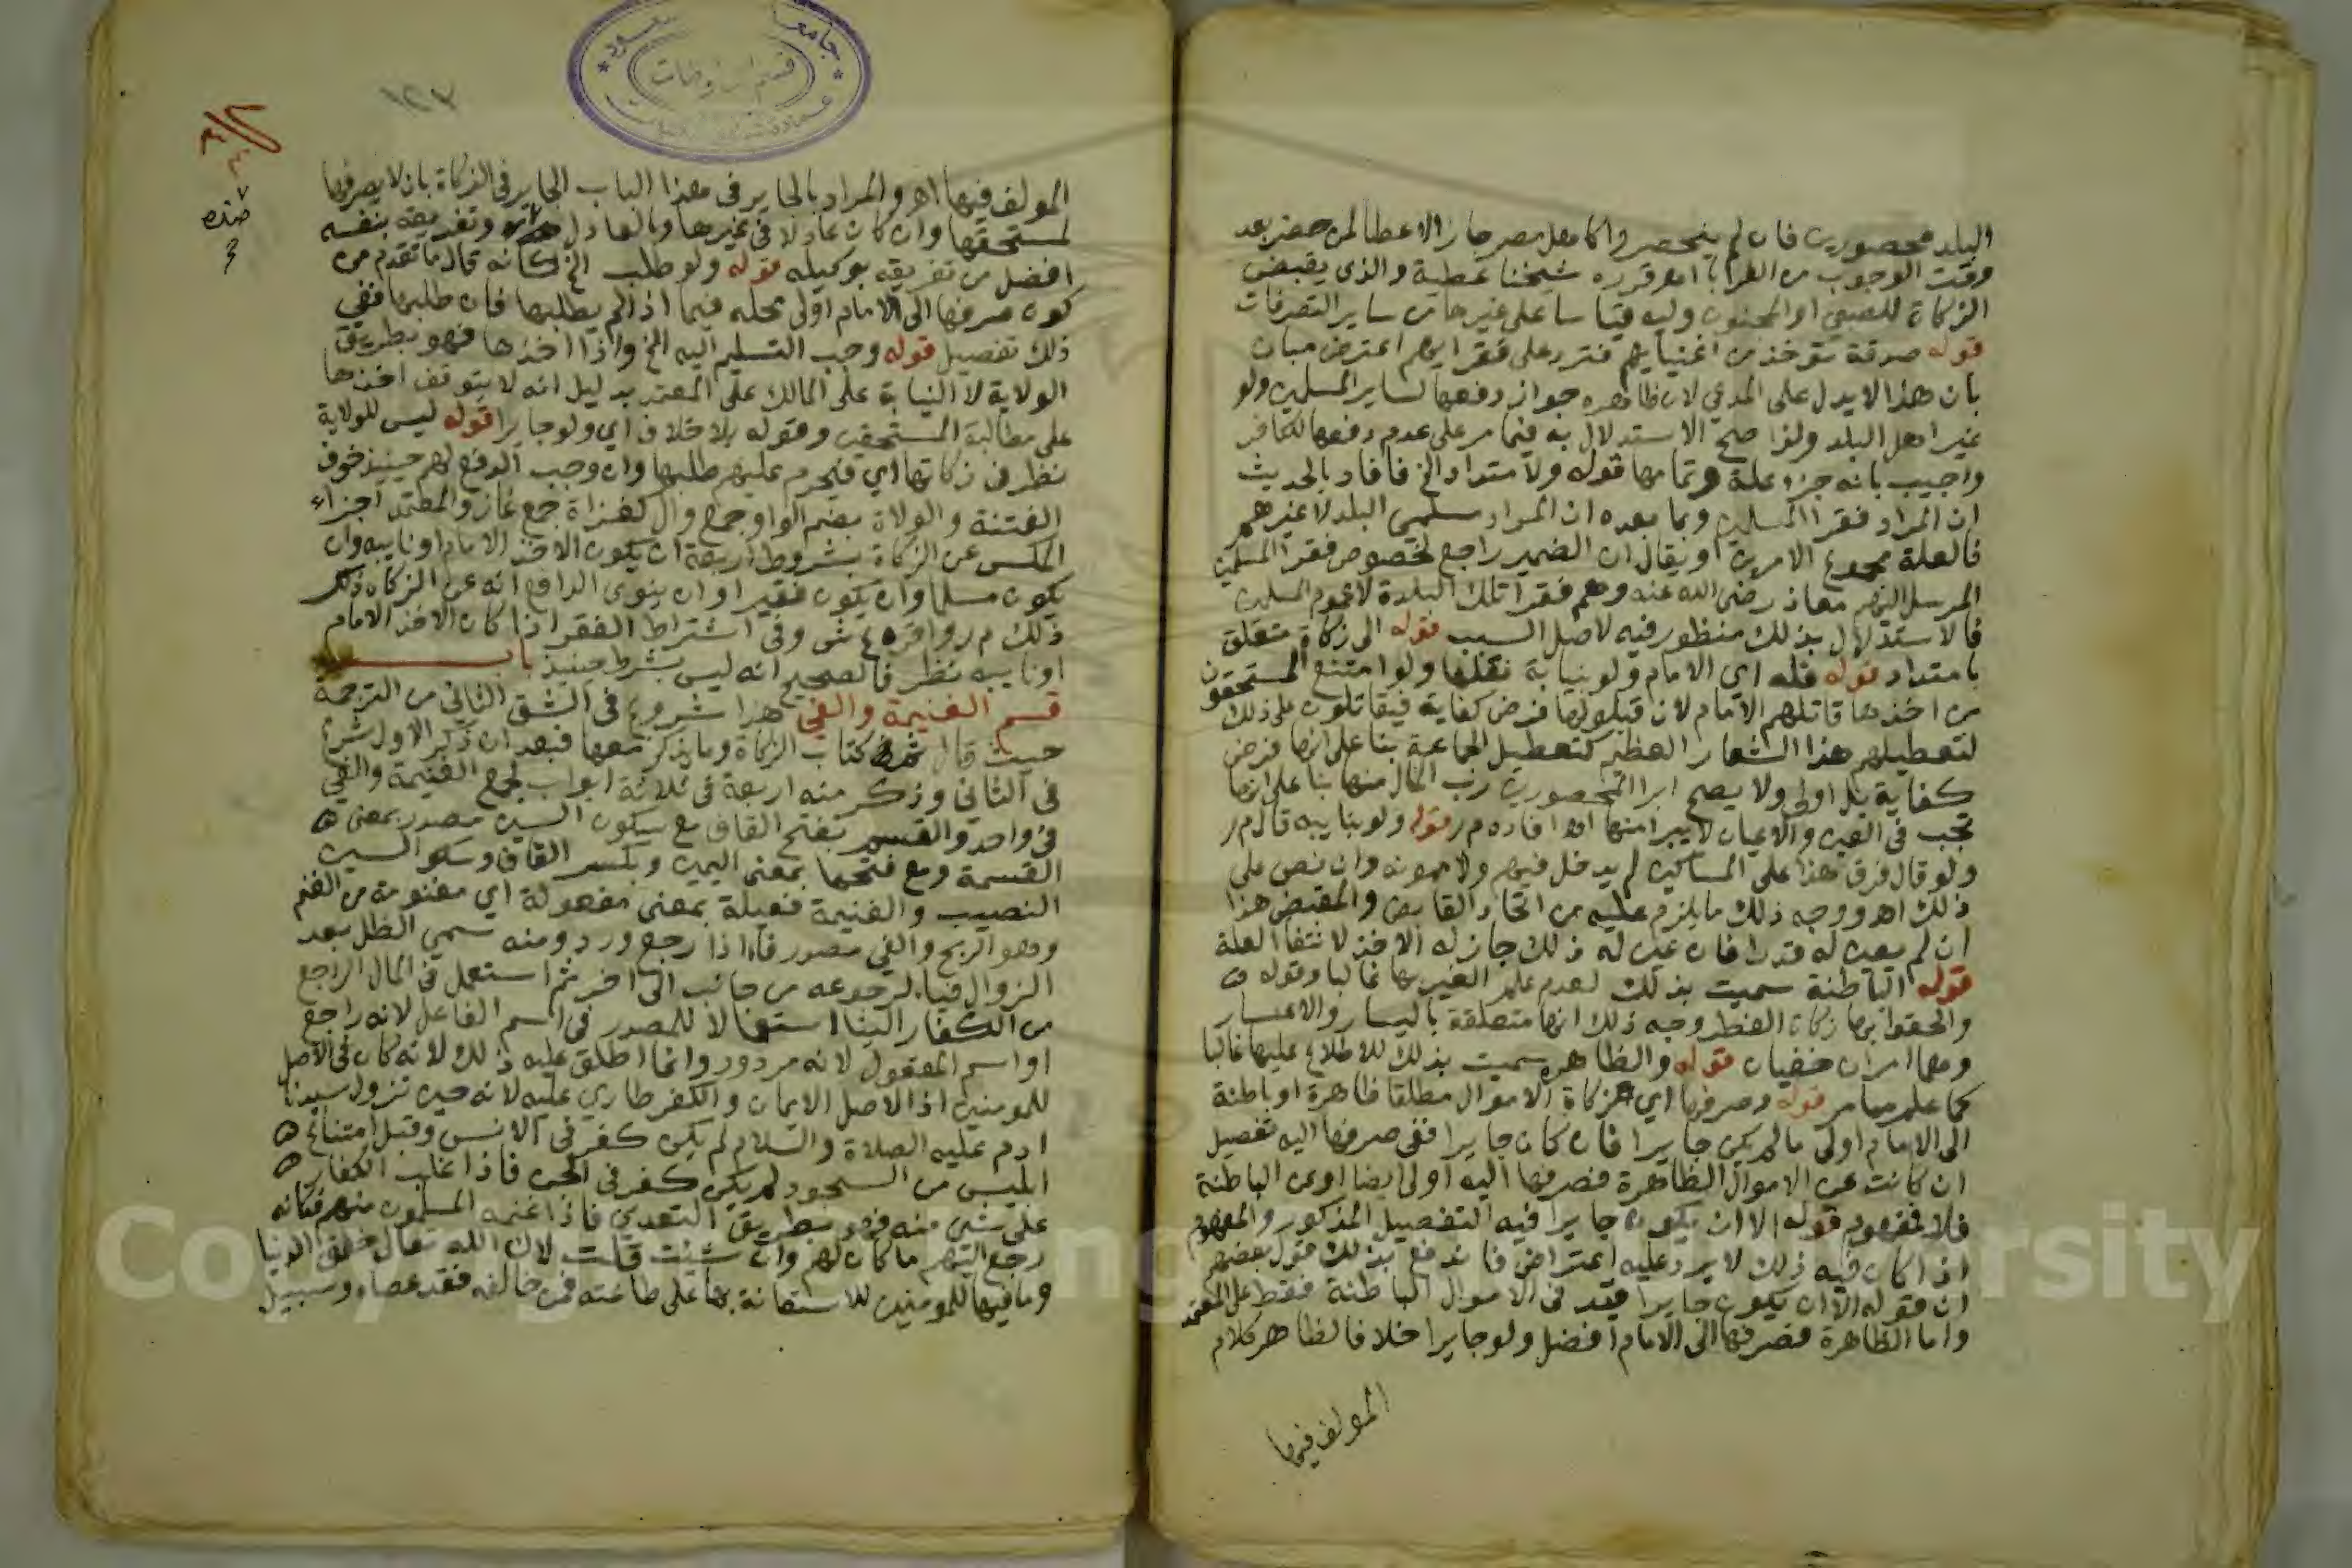 البلد محصورين فان لم ينحصروا كاهل مصر جاز الاعطا لمن حضر بعد
وقت الوجوب من الغربا اه قرره شيخنا عطية والذى يقبض
الزكاة للصبي او المجنون وليه قياسا على غيرها من ساير التصرفات
قوله صدقة تؤخذ من اغنيايهم فترد على فقرايهم اعترض مبان
بان هذا لا يدل على المدعي لان ظاهره جواز دفعها لساير المسلمين ولو
غير اهل البلد ولذا صح الاستدلال به فيما مر على عدم دفعها لكافر
واجيب بانه جزء علة وتمامها قوله ولامتداد الخ فافاد بالحديث
ان المراد فقرا المسلمين وبما بعده ان المراد مسلمي البلد لا غيرهم
فالعلة مجموع الامرين او يقال ان الضمير راجع لخصوص فقرا المسلمين
المرسل اليهم معاذ رضى الله عنه وهم فقرا تلك البلدة لا عموم المسلمين
فالاستدلال بذلك منظور فيه لاصل السبب قوله الى زكاة متعلق
بامتداد قوله فله اي الامام ولو نيابة نقلها ولو امتنع المستحقون
من اخذها قاتلهم الامام لان قبولها فرض كفاية فيقاتلون على ذلك
لتعطيلهم هذا الشعار العظيم كتعطيل الجماعة بنا على انها فرض
كفاية بل اولى ولا يصح ابرا المحصورين رب المال منها بنا على انها
تجب في العين والاعيان لا يبرا منها اه افاده م ر قوله ولو بنايبه قال م ر
ولو قال فرق هذا على المساكين لم يدخل فيهم ولا ممونه وان نص على
ذلك اه ووجه ذلك ما يلزم عليه من اتحاد القابض والمقبض هذا
ان لم يعين له قدرا فان عين له ذلك جاز له الاخذ لانتفا العلة
قوله الباطنة سميت بذلك لعدم علم الغير بها غالبا وقوله
والحقوا بها زكاة الفطر وجه ذلك انها متعلقة باليسار والاعسار
وهما امران خفيان قوله والظاهره سميت بذلك للاطلاع عليها غالبا
كما علم مما مر قوله وصرفها اي زكاة الاموال مطلقا ظاهرة او باطنة
الى الامام اولى ما لم يكن جايرا فان كان جايرا ففى صرفها اليه تفصيل
ان كانت عن الاموال الظاهرة فصرفها اليه اولى ايضا او عن الباطنة
فلا فمفهوم قوله الا ان يكون جايرا فيه التفصيل المذكور والمفهوم
اذا كان فيه ذلك لا يرد عليه اعتراض فاندفع بذلك قول بعضهم
ان قوله الا ان يكون جايرا قيد فى الاموال الباطنة فقط على المعتمد
واما الظاهرة فصرفها الى الامام افضل ولو جايرا خلافا لظاهر كلام
المولف فيها
المولف فيها اه والمراد بالجاير فى هذا الباب الجاير فى الزكاة بان لا يصرفها
لمستحقها وان كان عادلا فى غيرها وبالعادل ضده وتفريقه بنفسه
افضل من تفريقه بوكيله قوله ولو طلب الخ كانه قال ما تقدم من
كون صرفها الى الامام اولى محله فيما اذا لم يطلبها فان طلبها ففي
ذلك تفصيل قوله وجب التسليم اليه الخ واذا اخذها فهو بطريق
الولاية لا النيابة على المالك على المعتمد بدليل انه لا يتوقف اخذها
على مطالبة المستحقين وقوله بلا خلاف اي ولو جايرا قوله ليس للولاية
نظر فى زكاتها اي فيحرم عليهم طلبها وان وجب الدفع لهم حينيذ خوف
الفتنة والولاة بضم الواو جمع وال كغزاة جمع غاز والمعتمد اجزاء
المكس عن الزكاة بشروط اربعة ان يكون الاخذ الامام او نايبه وان
يكون مسلما وان يكون فقيرا وان ينوى الدافع انه عن الزكاة ذكر
ذلك م ر واقره ع ش وفى اشتراط الفقر اذا كان الاخذ الامام
او نايبه نظر فالصحيح انه ليس بشرط حينيذ باب
قسم الغنيمة والفي هذا شروع فى الشق الثاني من الترجمة
حيث قال ثم كتاب الزكاة وما يذكر معها فبعد ان ذكر الاول شرع
فى الثاني وذكر منه اربعة فى ثلاثة ابواب لجمع الغنيمة والفي
فى واحد والقسم بفتح القاف مع سكون السين مصدر بمعنى
القسمة ومع فتحها بمعنى اليمين وبكسر القاف وسكون السين
النصيب والغنيمة فعيلة بمعنى مفعولة اي مغنومة من الغنم
وهو الربح والفي مصدر فاء اذا رجع ورد ومنه سمي الظل بعد
الزوال فيئا لرجوعه من جانب الى اخر ثم استعمل فى المال الراجع
من الكفار الينا استعمالا للمصدر فى اسم الفاعل لانه راجع
او اسم المفعول لانه مردود وانما اطلق عليه ذلك لانه كان فى الاصل
للمومنين اذ الاصل الايمان والكفر طاري عليه لانه حين نزول سيدنا
ادم عليه الصلاة والسلام لم يكن كفر فى الانس وقبل امتناع
ابليس من السجود لم يكن كفر فى الجن فاذا غلب الكفار
على شى منه فهو بطريق التعدي فاذا غنمه المسلمون منهم فكانه
رجع اليهم ما كان لهم وان شئت قلت لان الله تعالى خلق الدنيا
وما فيها للمومنين للاستعانة بها على طاعته فمن خالفه فقد عصاه وسبيل
ضده
Copy University